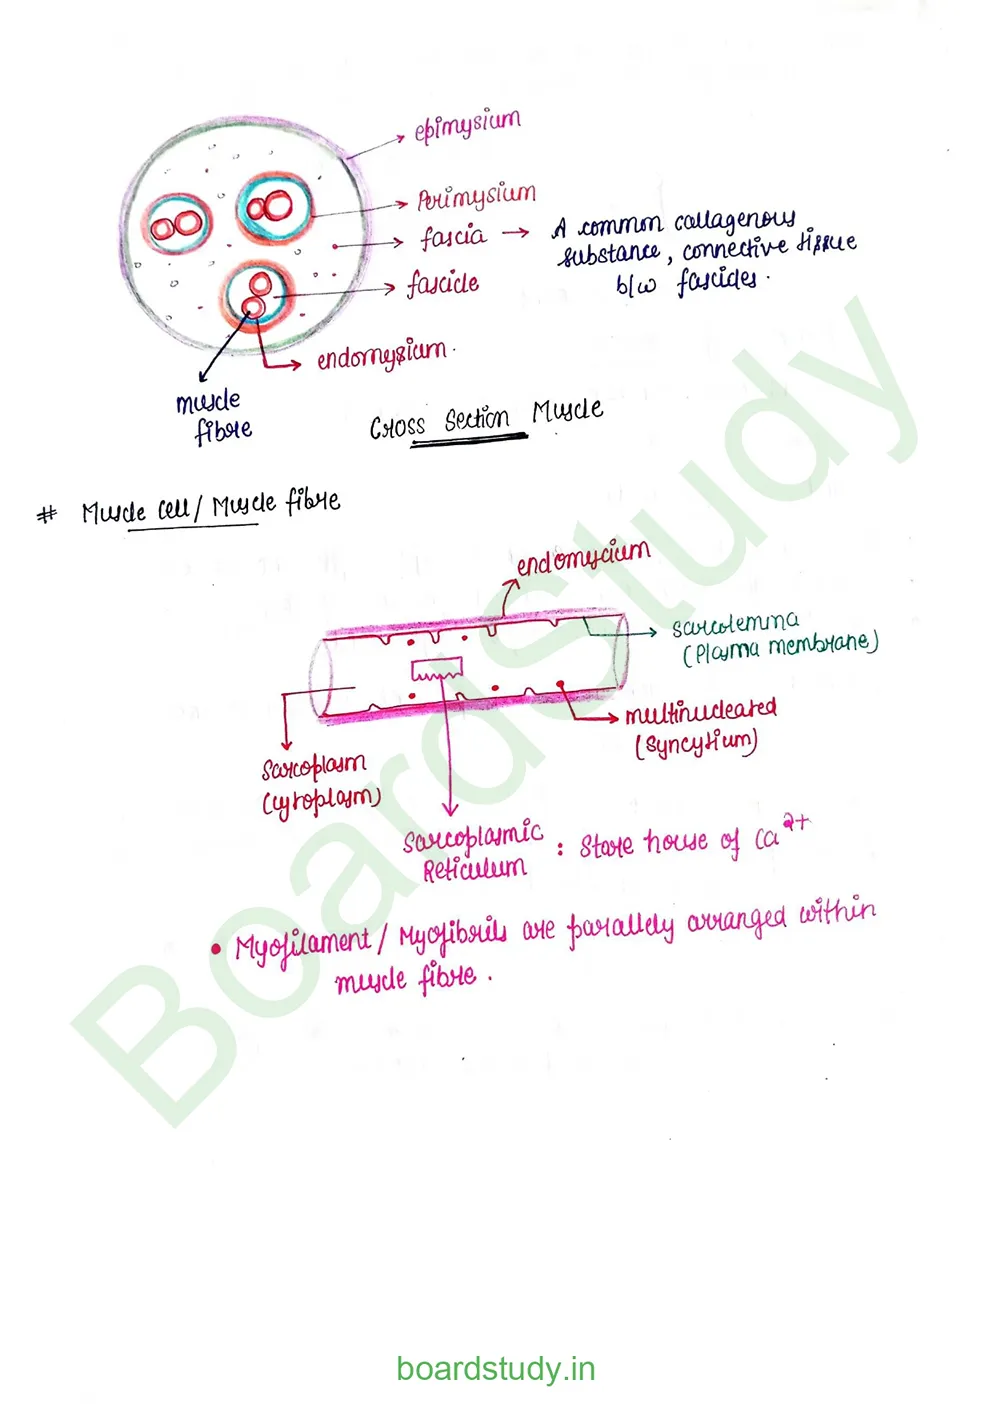 epimysium
Perimysium
fascia → A common collagenous
substance, connective tissue
b/w fascides.
fascicle
endomysium.
muscle
fibre
Cross Section Muscle
# Muscle Cell / Muscle fibre
endomycium
sarcolemma
(Plasma membrane)
multinucleated
(Syncytium)
Sarcoplasm
(Cytoplasm)
Sarcoplasmic
Reticulum : Store house of Ca2+
• Myofilament / Myofibrils are parallely arranged within
muscle fibre.
Boardstudy
boardstudy.in